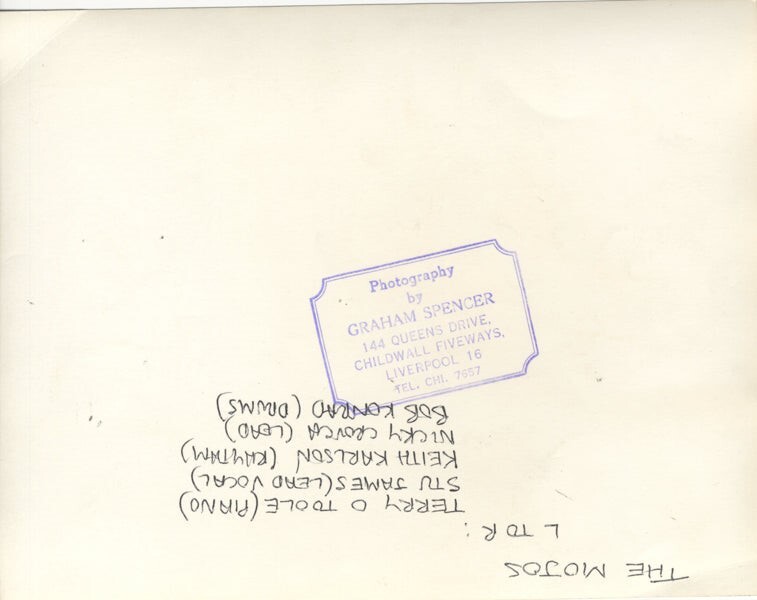 Photography
by
GRAHAM SPENCER
144 QUEENS DRIVE,
CHILDWALL FIVEWAYS,
LIVERPOOL 16
TEL. CHI. 7657
THE MOJOS
L TO R :
TERRY O TOOLE (PIANO)
STU JAMES (LEAD VOCAL)
KEITH KARLSON (RHYTHM)
NICKY CROUCH (LEAD)
BOB KONRAD (DRUMS)